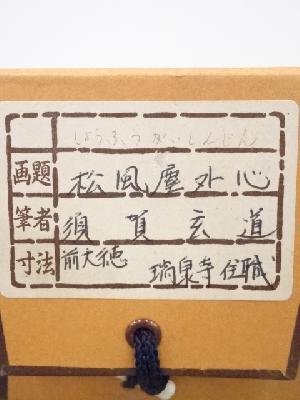 しょうふうがいしんじん
画題 松風塵外心
筆者 須賀玄道
寸法 前大徳 瑞泉寺住職